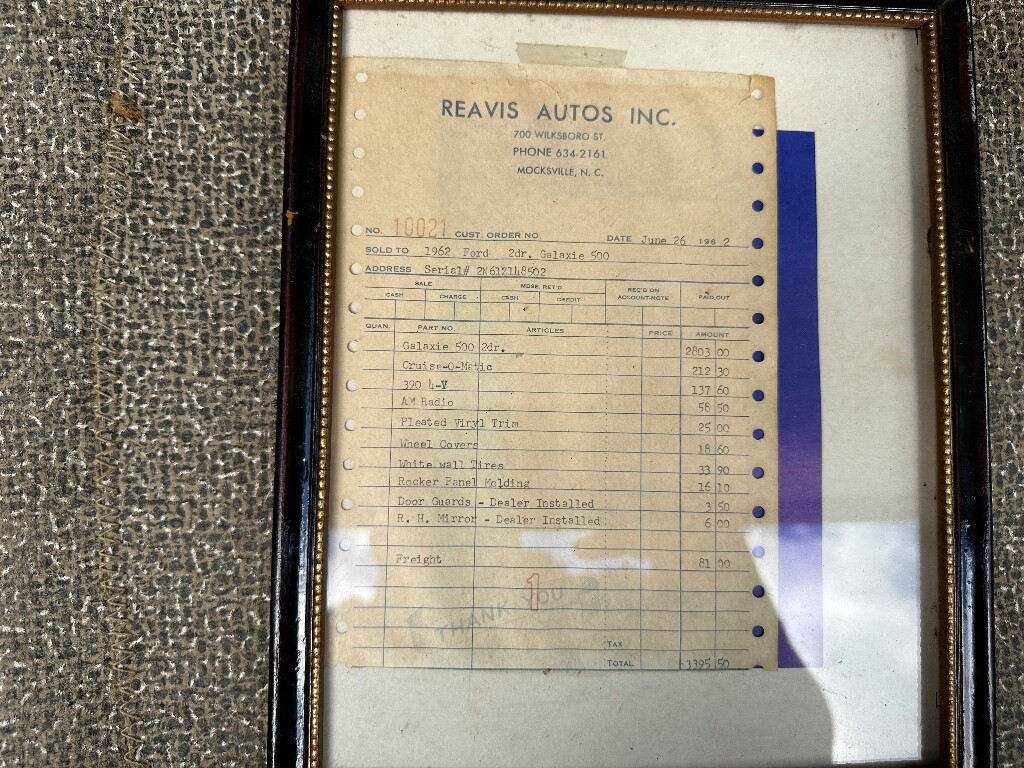 REAVIS AUTOS INC.
700 WILKSBORO ST.
PHONE 634-2161
MOCKSVILLE, N. C.
NO. 10021 CUST. ORDER NO. DATE June 26 1962
SOLD TO 1962 Ford 2dr. Galaxie 500
ADDRESS Serial# 2N61Z148502
SALE MDSE. RET'D. REC'D ON ACCOUNT-NOTE PAID OUT
CASH CHARGE CASH CREDIT
QUAN. PART NO. ARTICLES PRICE AMOUNT
Galaxie 500 2dr. 2803 00
Cruise-O-Matic 212 30
390 4-V 137 60
AM Radio 58 50
Pleated Vinyl Trim 25 00
Wheel Covers 18 60
White wall Tires 33 90
Rocker Panel Molding 16 10
Door Guards - Dealer Installed 3 50
R. H. Mirror - Dealer Installed 6 00
Freight 81 00
1
THANK YOU
TAX
TOTAL 3395 50